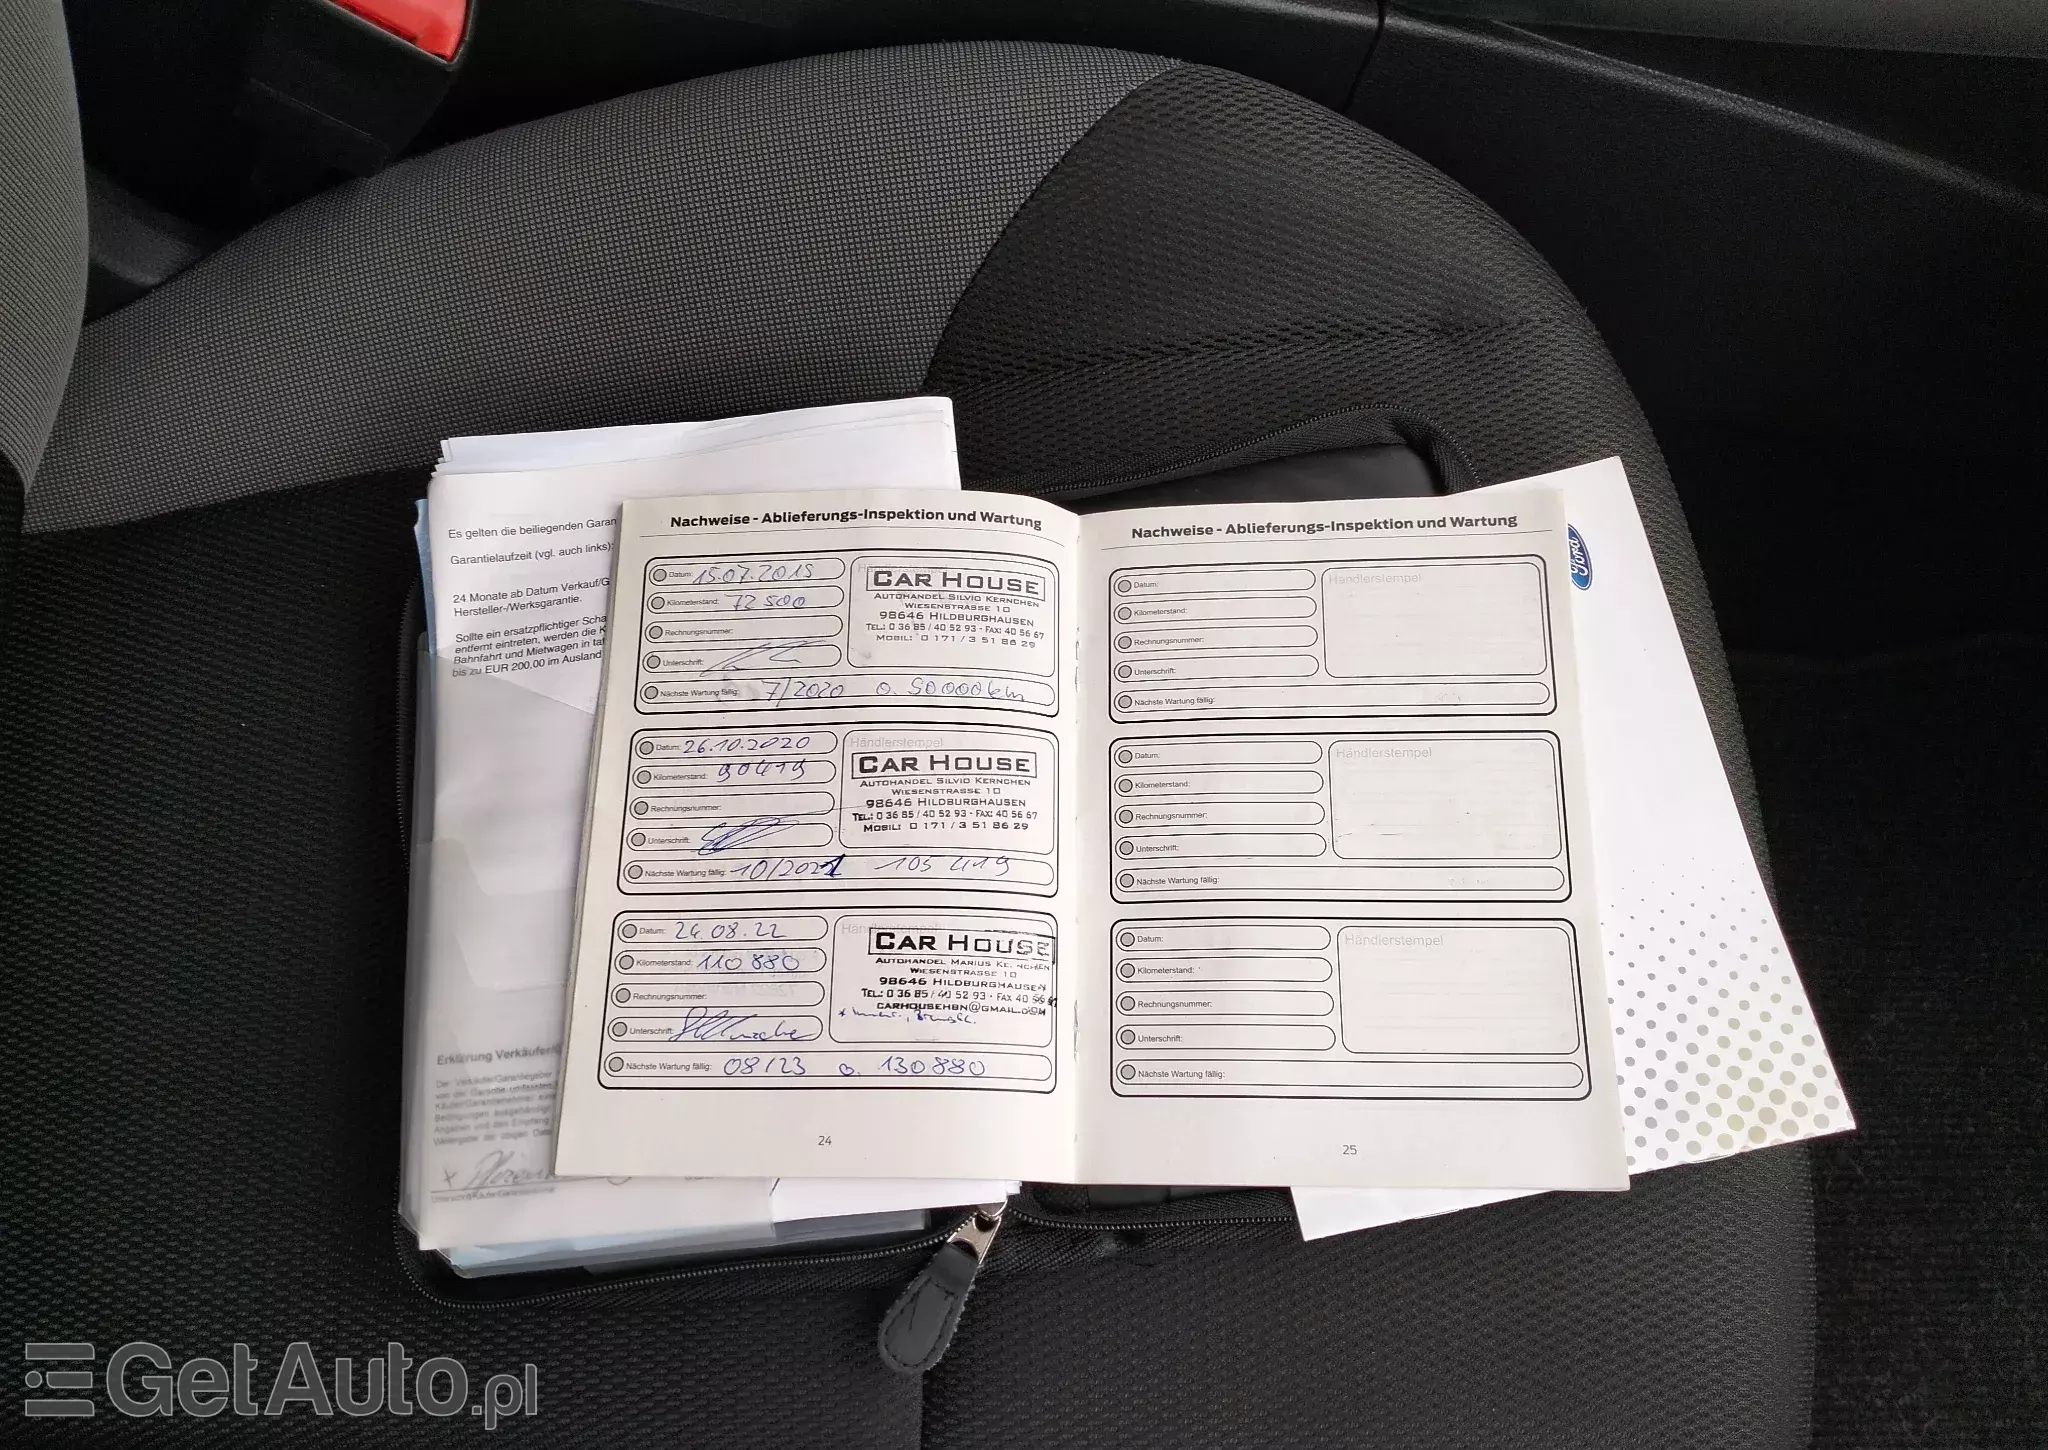 Es gelten die beiliegenden Garan
Garantielaufzeit (vgl. auch links):
24 Monate ab Datum Verkauf/G
Hersteller-/Werksgarantie.
Sollte ein ersatzpflichtiger Scha
entfernt eintreten, werden die K
Bahnfahrt und Mietwagen in tat
bis zu EUR 200.00 im Ausland
Erklärung Verkäufer/G
Der Verkäufer/Garantiegeber
von der Garantie umfassten
Käufer/Garantienehmer eine
Bedingungen ausgehändigt
Angaben und den Empfang
Weitergabe der obigen Daten
Unterschrift Käufer/Garantienehmer
Nachweise - Ablieferungs-Inspektion und Wartung
Datum: 15.07.2019
Kilometerstand: 72 500
Rechnungsnummer:
Unterschrift:
Nächste Wartung fällig: 7/2020 o. 90000km
Händlerstempel
CAR HOUSE
AUTOHANDEL SILVIO KERNCHEN
WIESENSTRASSE 10
98646 HILDBURGHAUSEN
TEL: 0 36 85 / 40 52 93 - FAX: 40 56 67
MOBIL: 0 171 / 3 51 86 29
Datum: 26.10.2020
Kilometerstand: 90419
Rechnungsnummer:
Unterschrift:
Nächste Wartung fällig: 10/2021 105 419
Händlerstempel
CAR HOUSE
AUTOHANDEL SILVIO KERNCHEN
WIESENSTRASSE 10
98646 HILDBURGHAUSEN
TEL: 0 36 85 / 40 52 93 - FAX: 40 56 67
MOBIL: 0 171 / 3 51 86 29
Datum: 24.08.22
Kilometerstand: 110 880
Rechnungsnummer:
Unterschrift:
Nächste Wartung fällig: 08/23 o. 130880
Händlerstempel
CAR HOUSE
AUTOHANDEL MARIUS KERNCHEN
WIESENSTRASSE 10
98646 HILDBURGHAUSEN
TEL: 0 36 85 / 40 52 93 - FAX 40 56 67
CARHOUSEHBN@GMAIL.COM
24
Nachweise - Ablieferungs-Inspektion und Wartung
Datum:
Kilometerstand:
Rechnungsnummer:
Unterschrift:
Nächste Wartung fällig:
Händlerstempel
Datum:
Kilometerstand:
Rechnungsnummer:
Unterschrift:
Nächste Wartung fällig:
Händlerstempel
Datum:
Kilometerstand:
Rechnungsnummer:
Unterschrift:
Nächste Wartung fällig:
Händlerstempel
25
Ford
GetAuto.pl